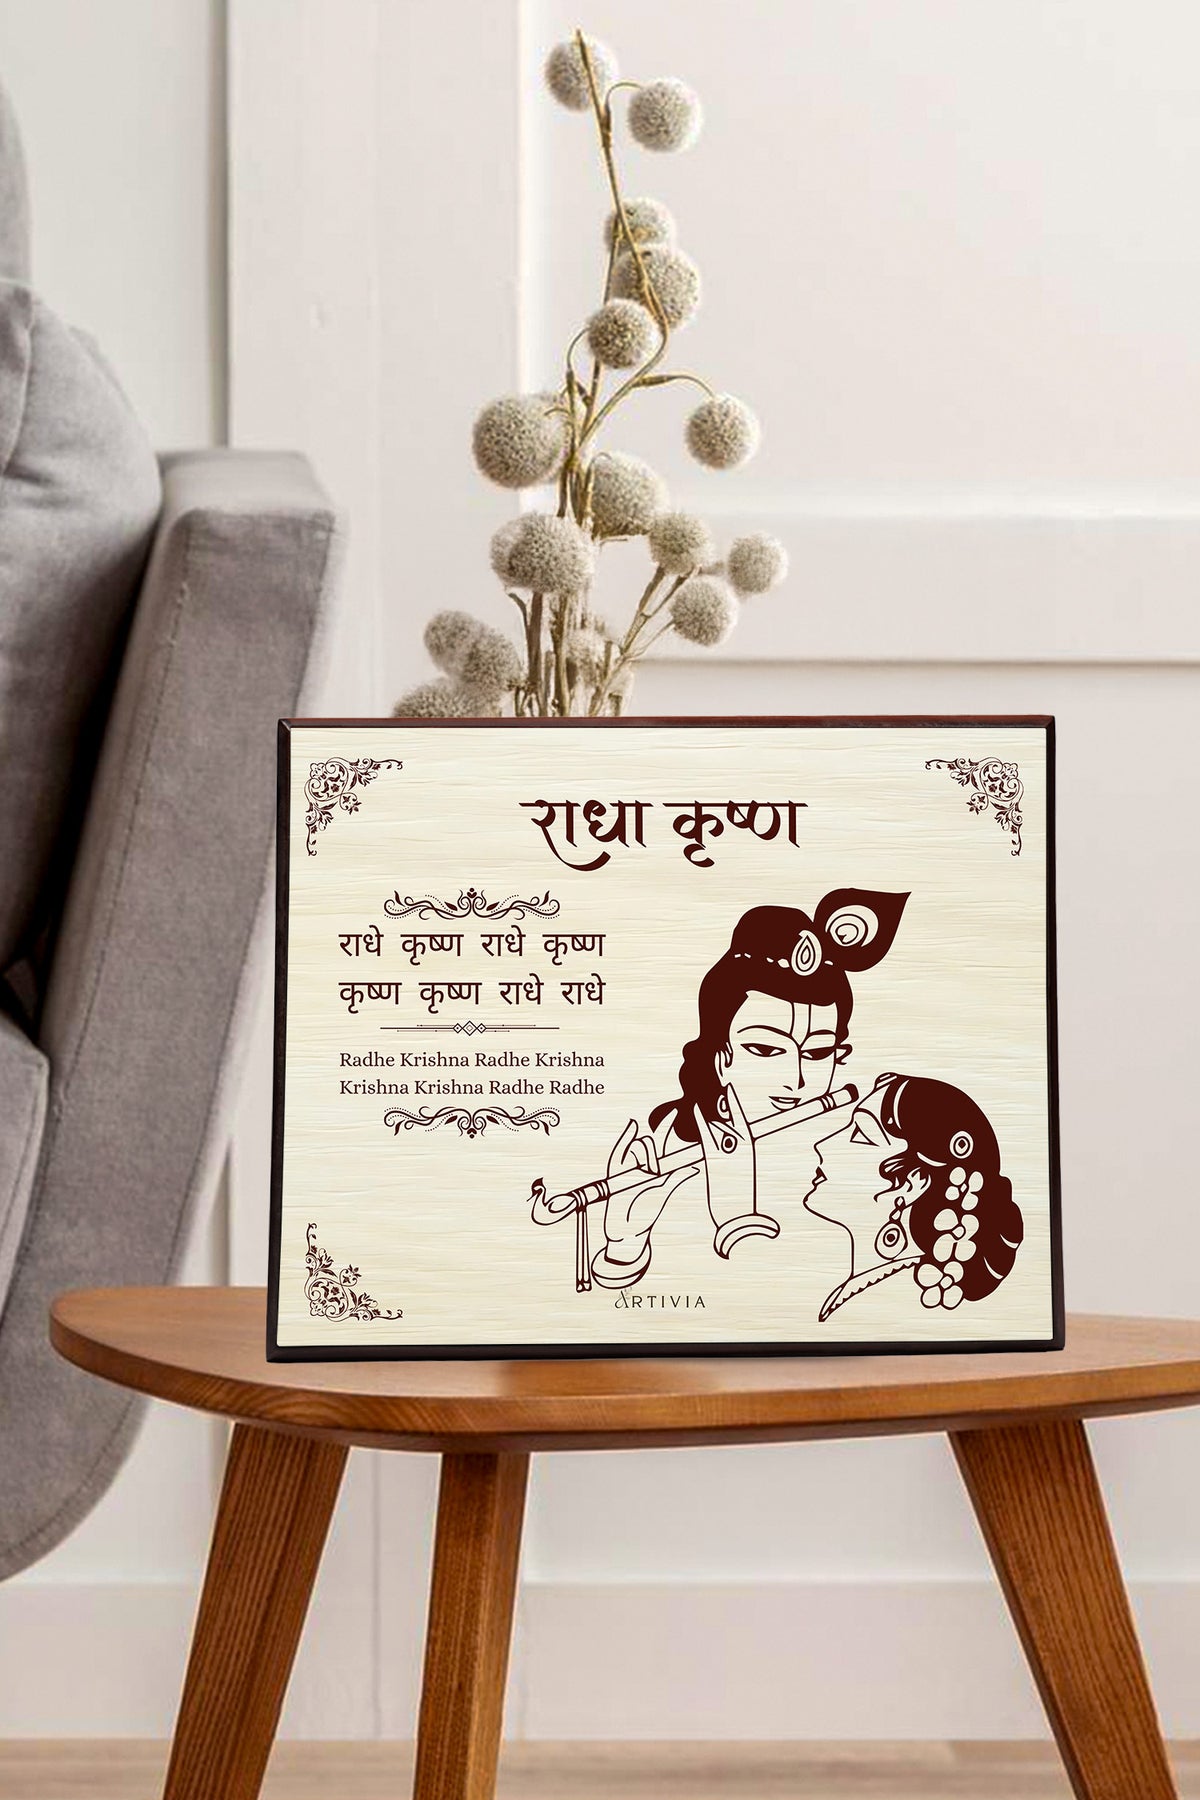 राधा कृष्ण
राधे कृष्ण राधे कृष्ण
कृष्ण कृष्ण राधे राधे
Radhe Krishna Radhe Krishna
Krishna Krishna Radhe Radhe
ARTIVIA